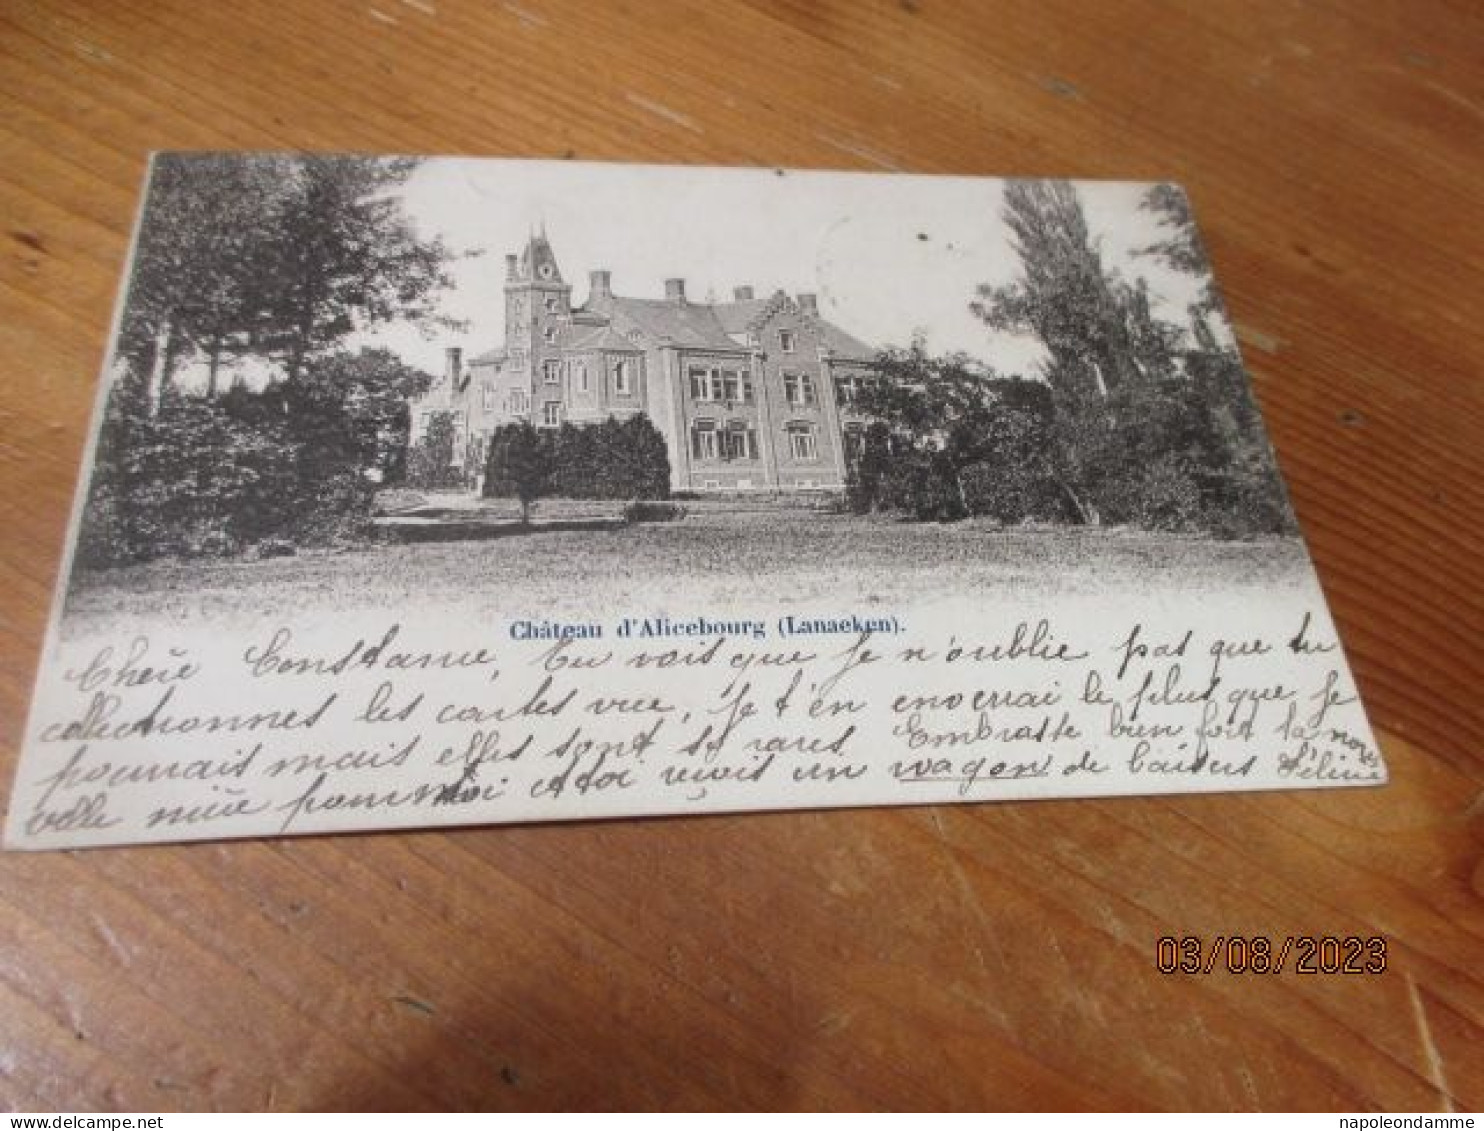 Château d'Alicebourg (Lanaeken).
Chère Constance, Tu vois que je n'oublie pas que tu
collectionnes les cartes vue, je t'en enverrai le plus que je
pourrais mais elles sont si rares. Embrasse bien fort ta nou
velle nièce pour moi et toi reçois un wagon de baisers Céline
03/08/2023
napoleondamme